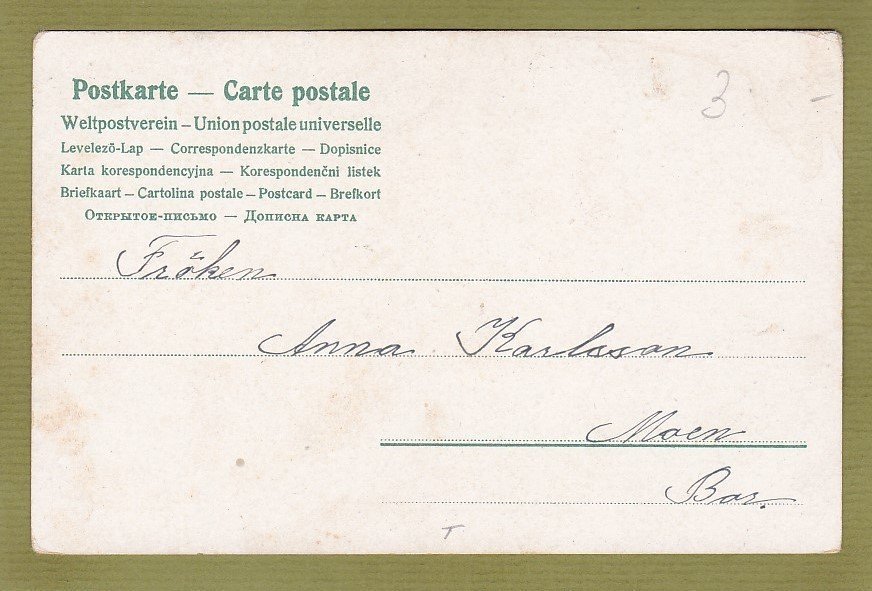 Postkarte — Carte postale
Weltpostverein – Union postale universelle
Levelező-Lap — Correspondenzkarte — Dopisnice
Karta korespondencyjna — Korespondenční listek
Briefkaart – Cartolina postale – Postcard – Brefkort
Открытое-письмо — Дописна карта
3
Fröken
Anna Karlsson
Moen
Bor.
T